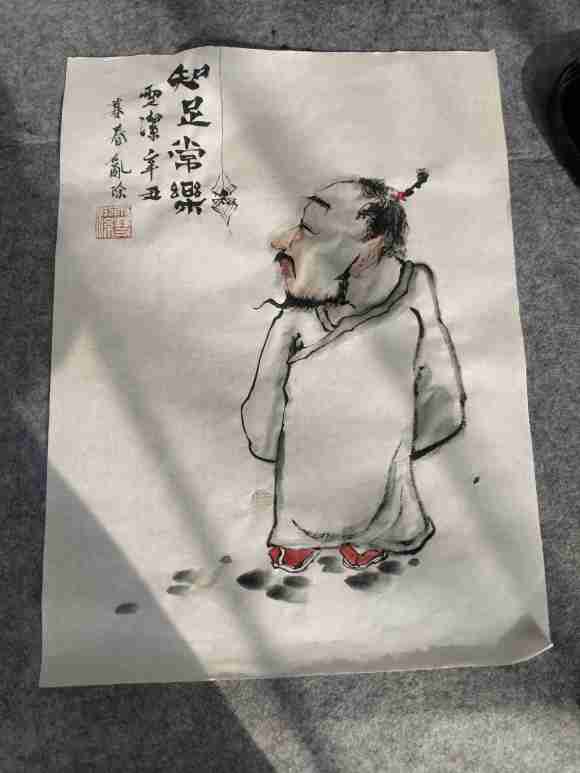 知足常樂
雪潔辛丑
暮春亂塗